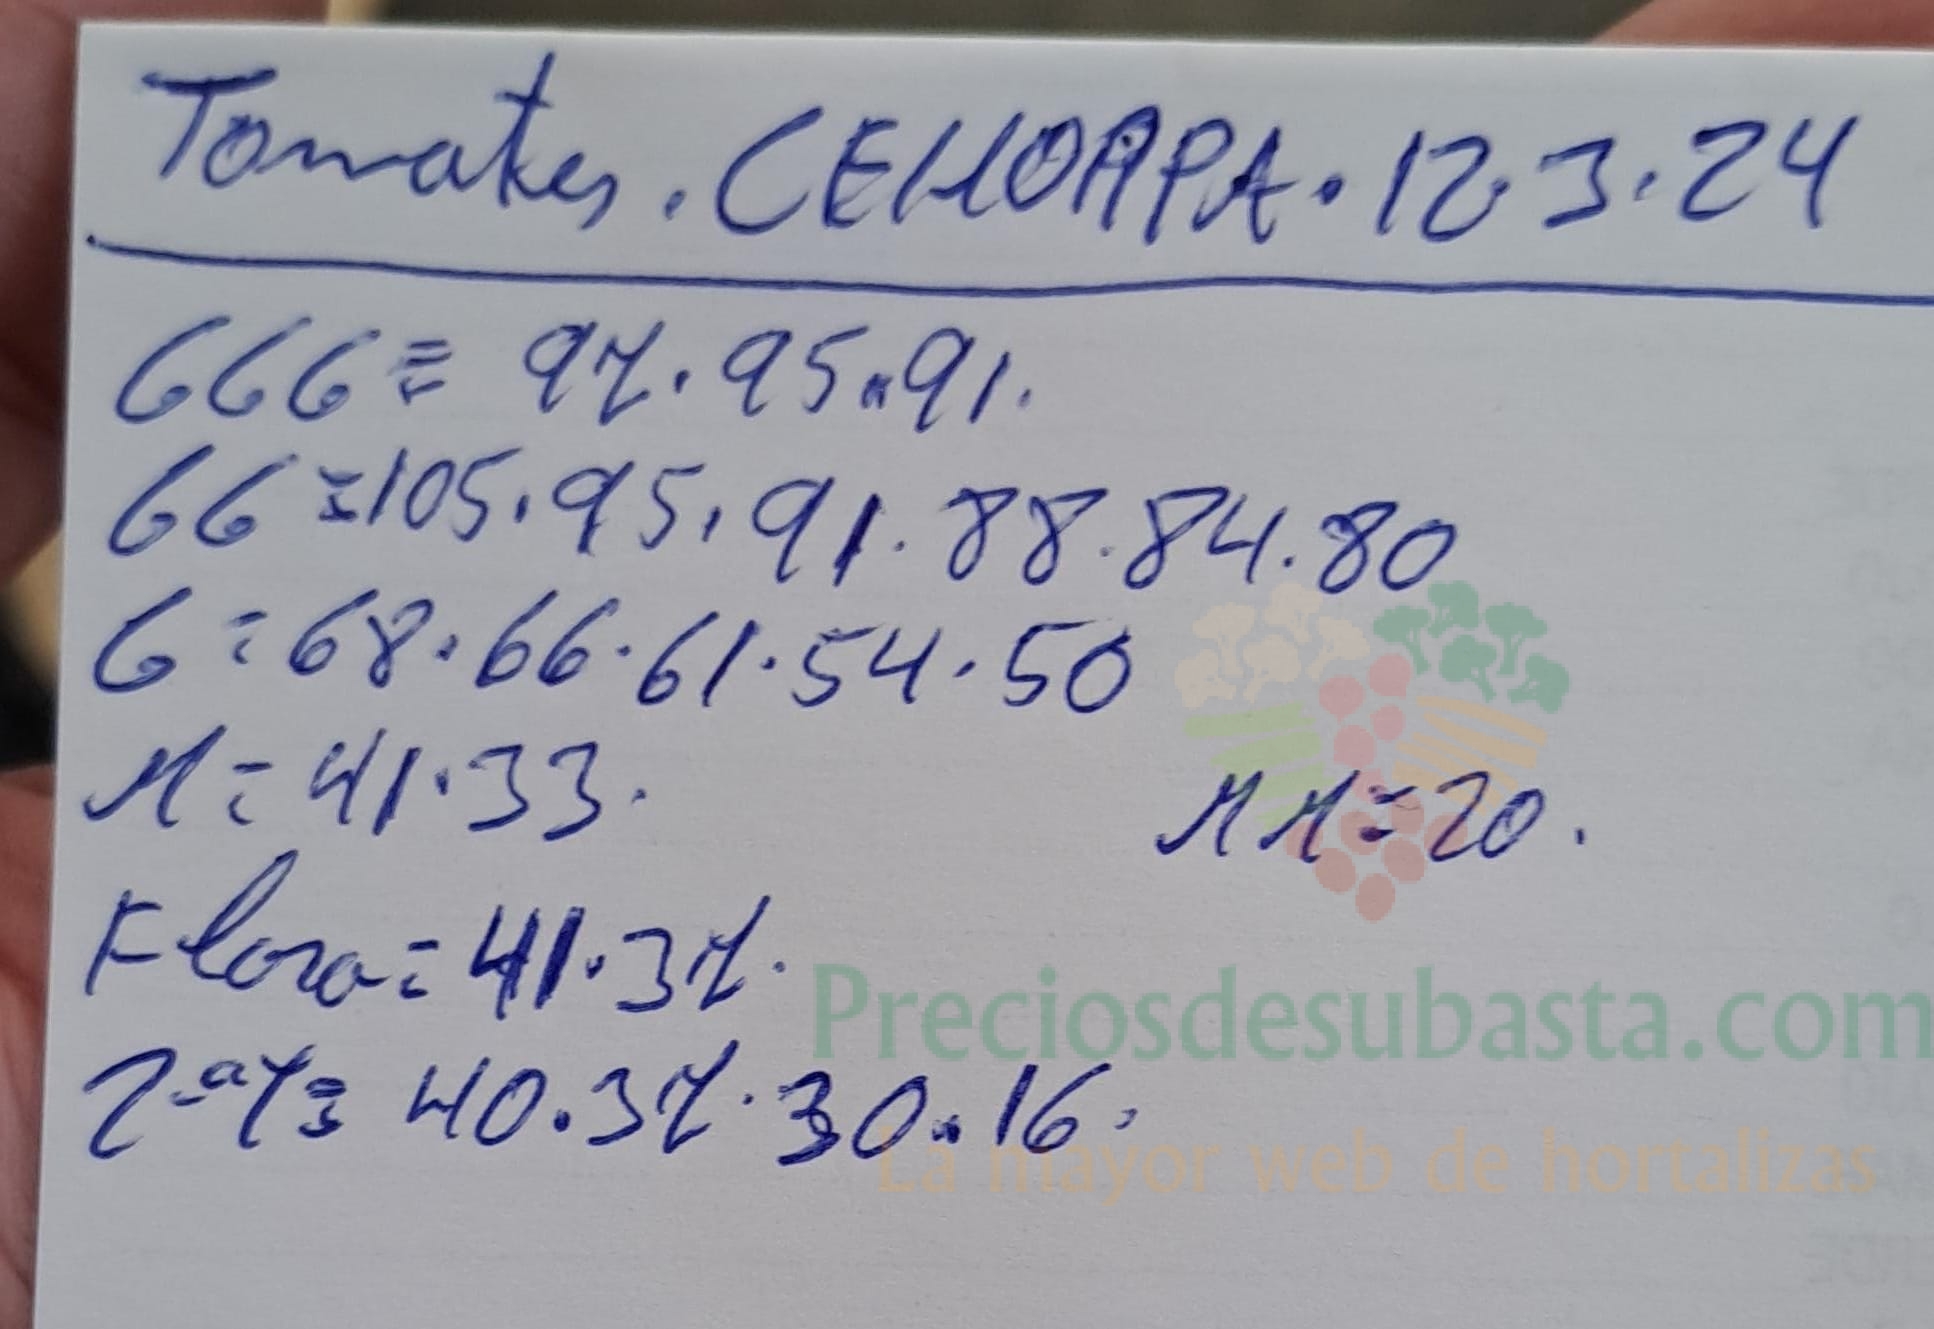 Tomates. CEHORPA. 12.3.24
GGG = 97. 95. 91.
GG = 105. 95. 91. 88. 84. 80
G = 68. 66. 61. 54. 50
M = 41. 33.
MM = 20.
Flora = 41. 37.
Preciosdesubasta.com
2ª Y = 40. 37. 30. 16.
La mayor web de hortalizas